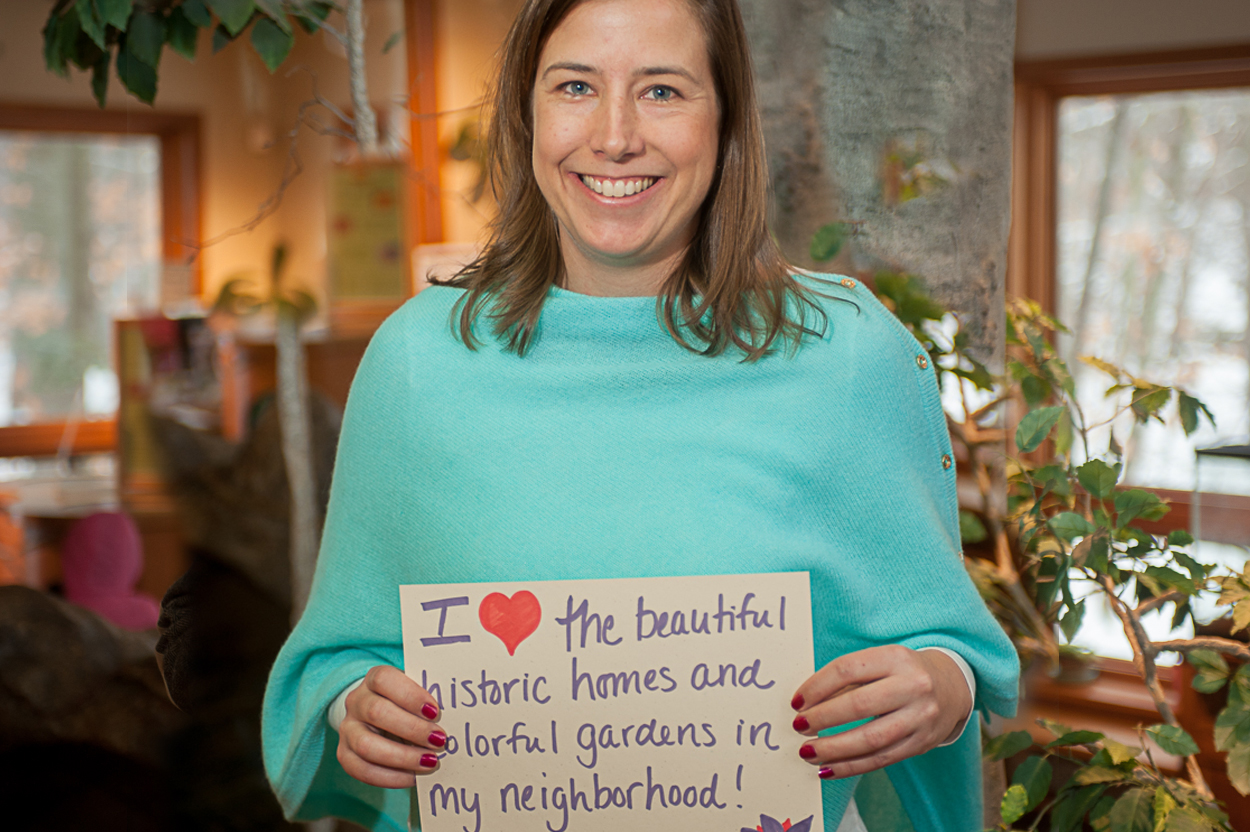 I ❤ the beautiful
historic homes and
colorful gardens in
my neighborhood!